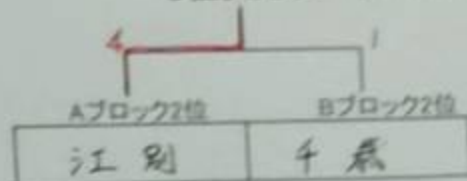 4 1
Aブロック2位 Bブロック2位
江別 千歳